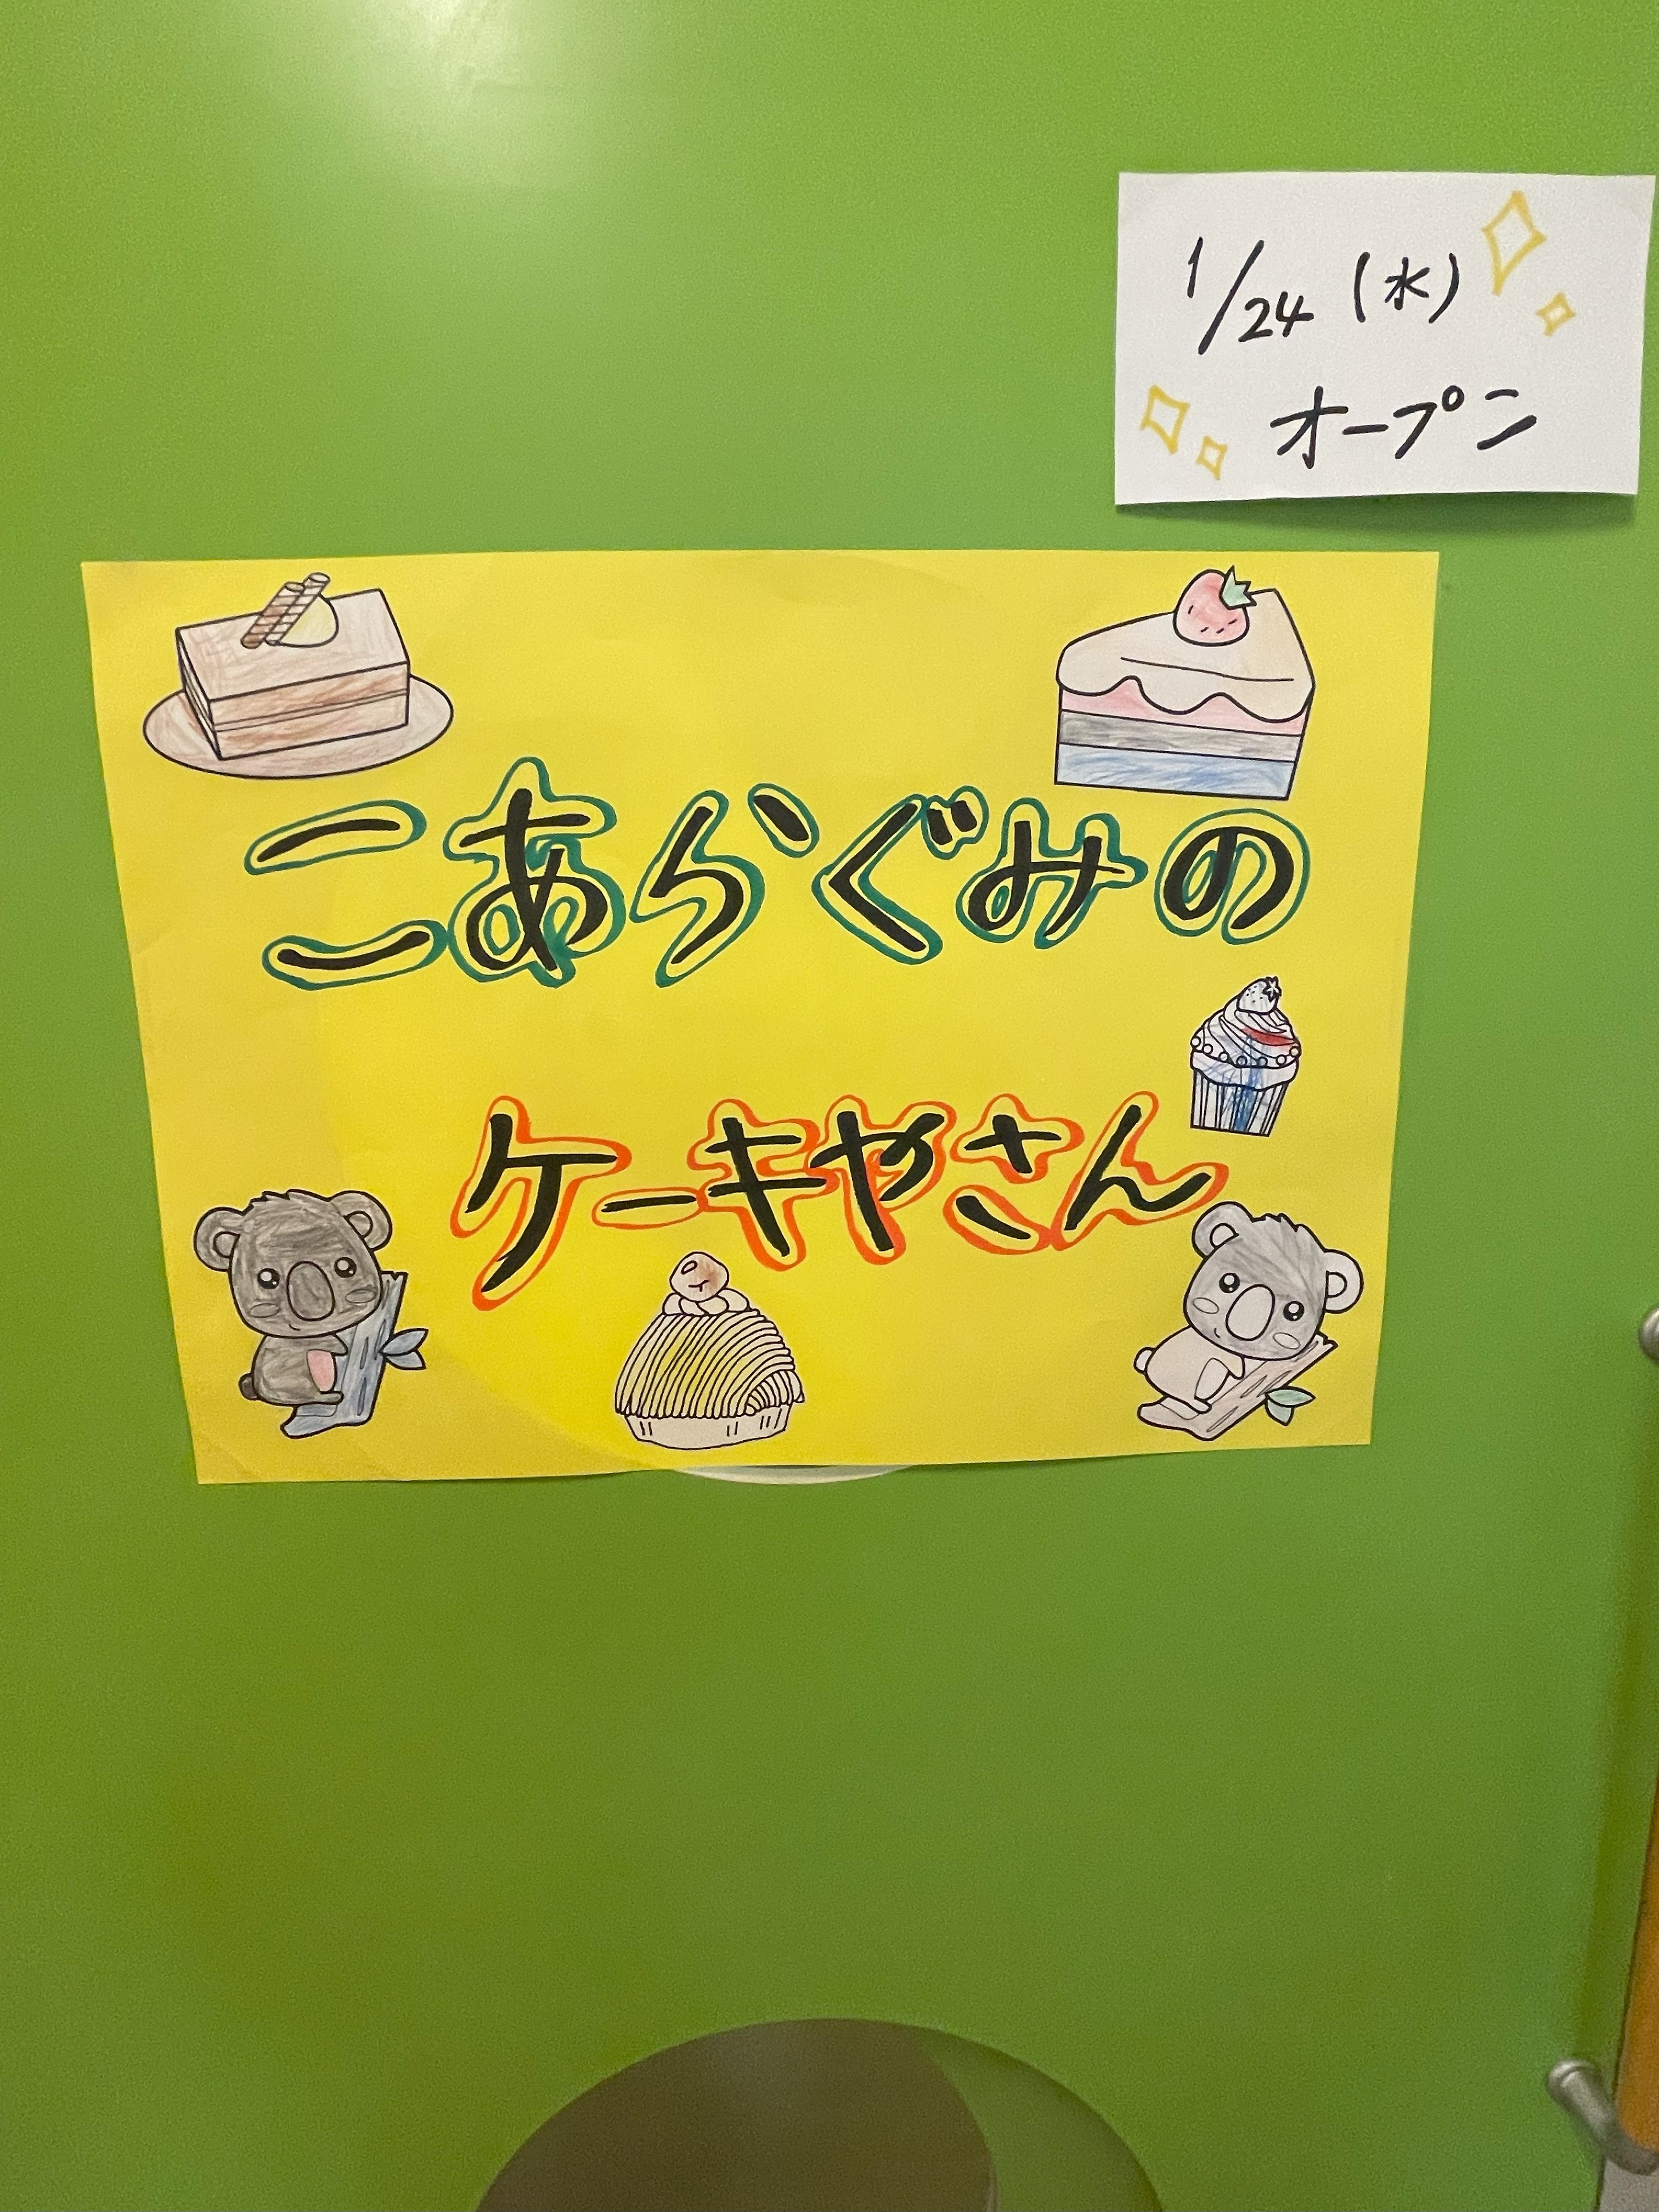 1/24（水）
オープン
こあらぐみの
ケーキやさん